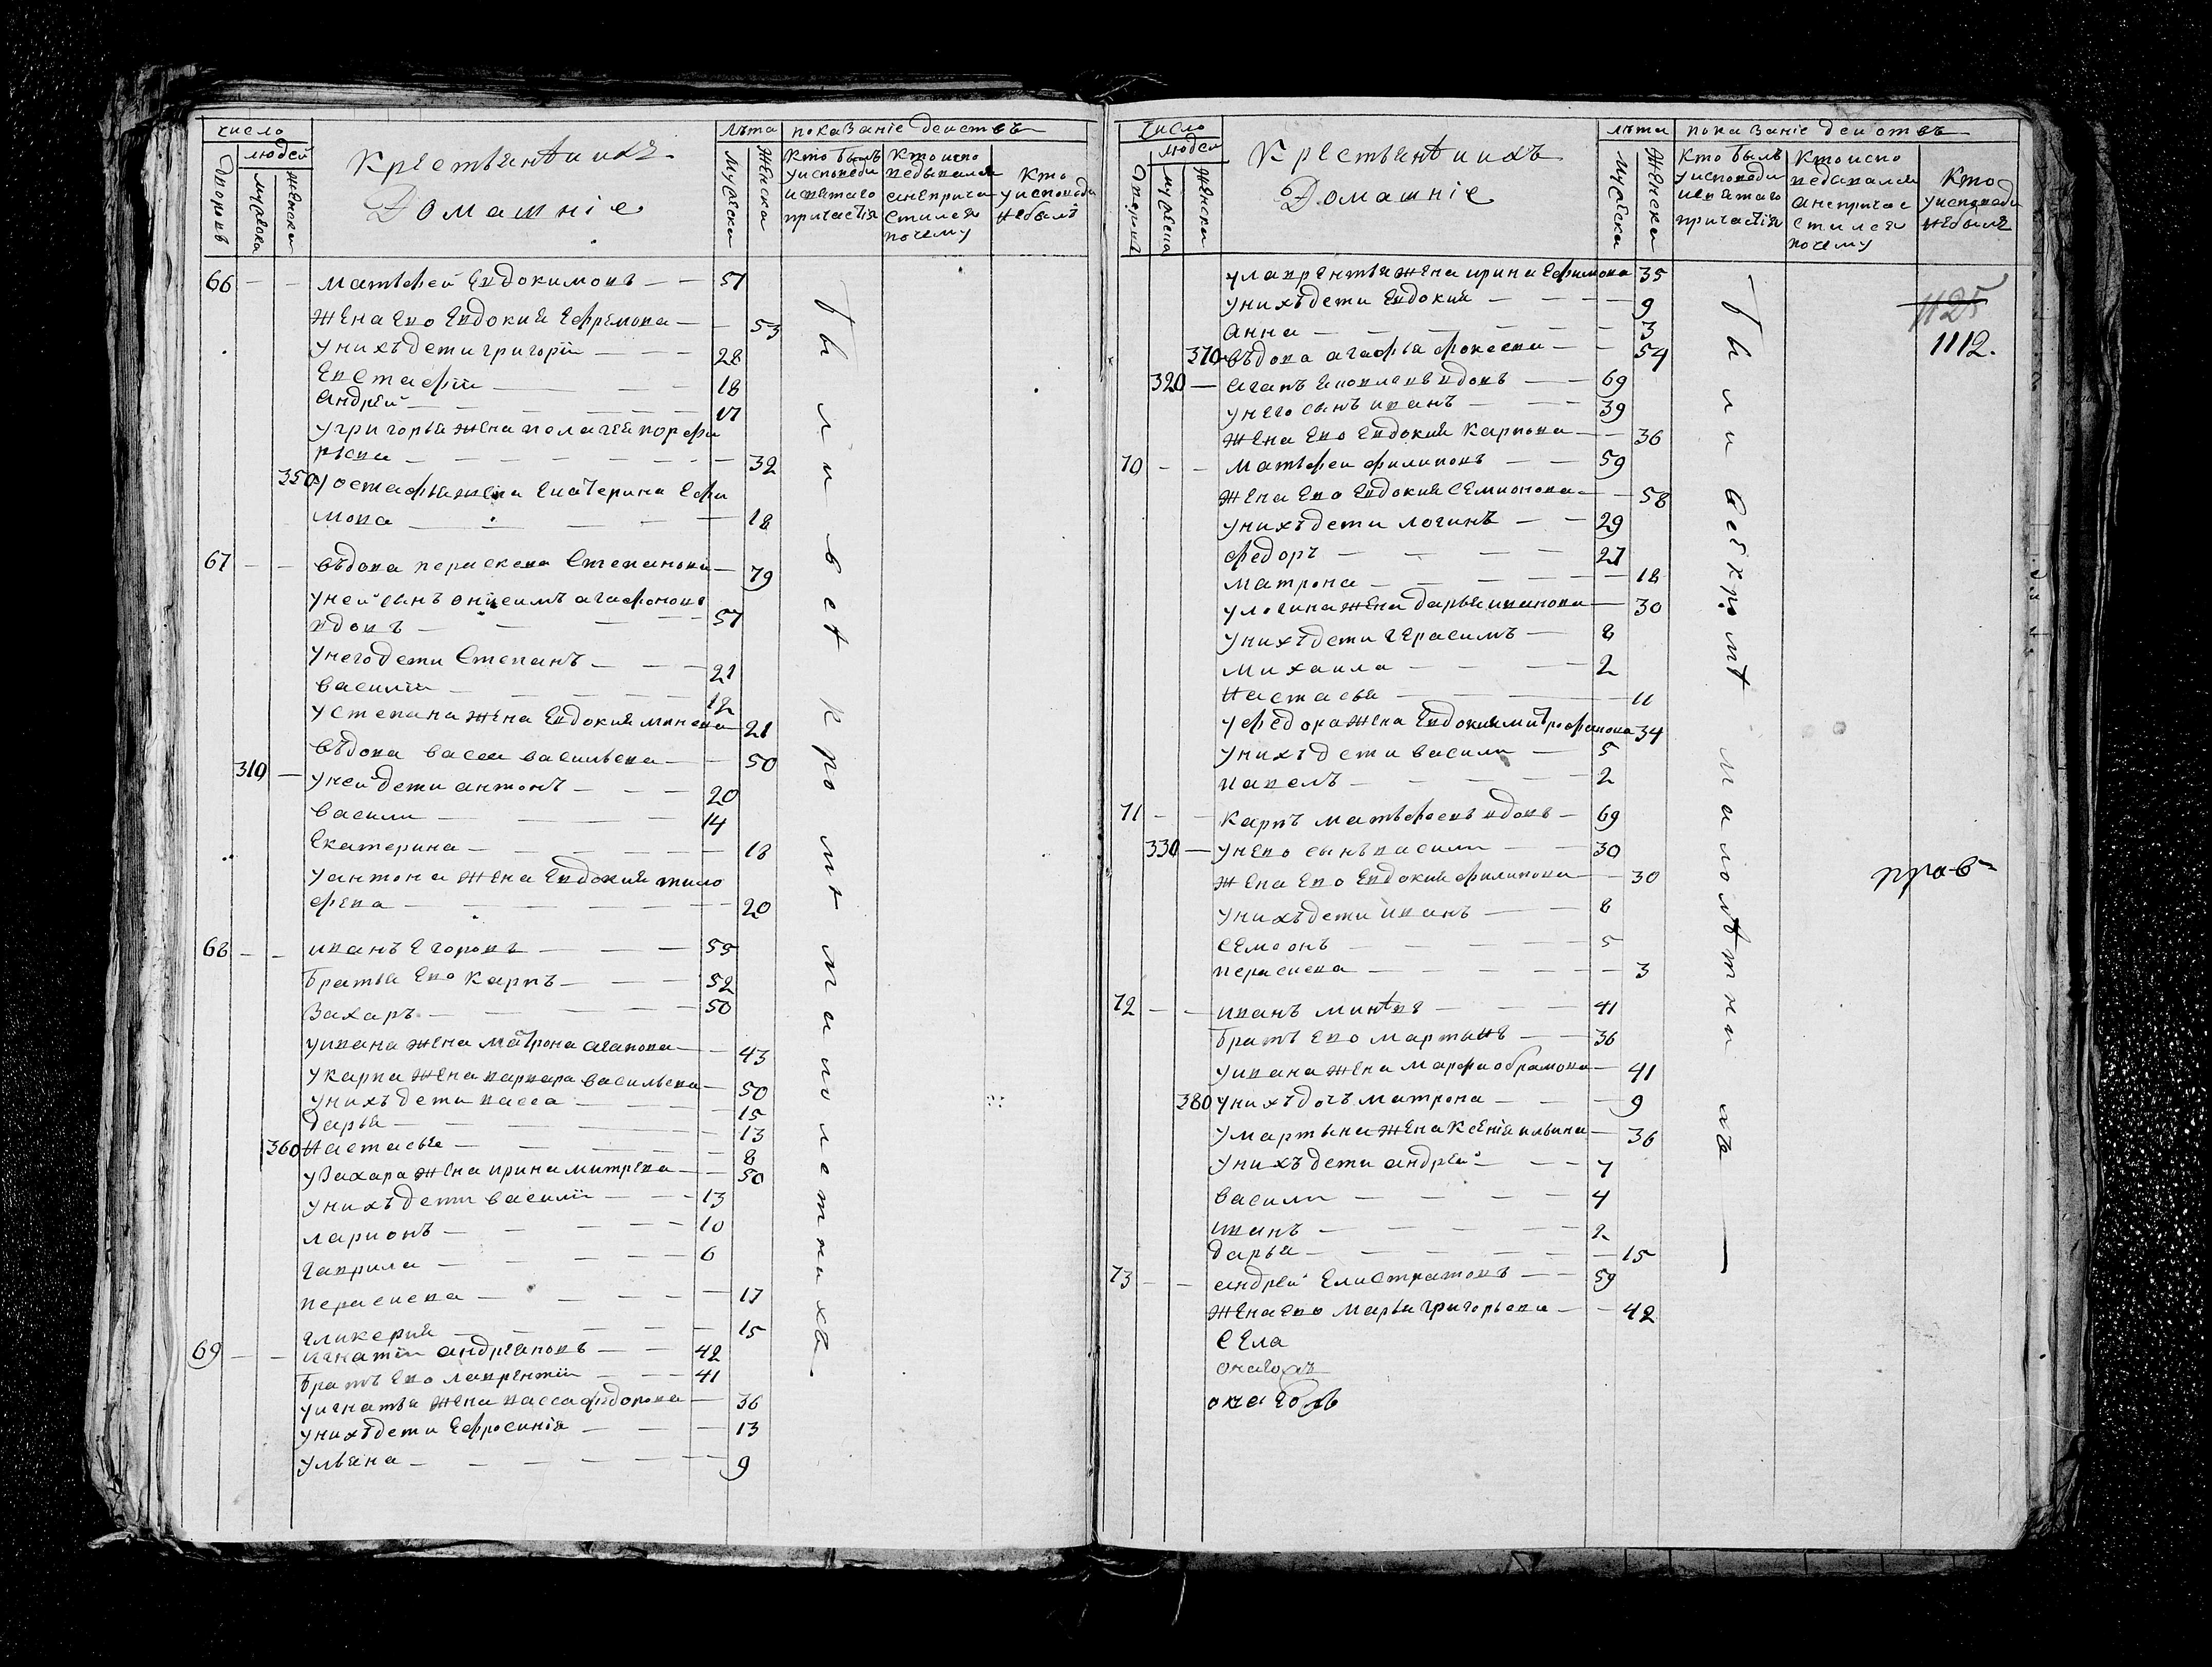 число
людей
дворовъ
мужеска
женска
Крестьянѣ и ихъ
Домашнiе
лѣта
мужеска
женска
показанiе действъ
Кто былъ
у исповеди
и святаго
причастiя
Кто испо
ведывался
а не прича
стился
почему
Кто
у исповеди
не былъ
66 — — Матвѣей Евдокимовъ — — 57
Жена Его Евдокия Ефремова — — 53
У нихъ дети григорiи — — — 28
Евстафiи — — — 18
Андреи — — — — — 17
У григорья жена пелагея порфи
рьева — — — — — — 32
350 У остафья жена Екатерина Ефи
мова — — — — — 18
67 — — Въдова параскева Степанова — 79
У ней сынъ онисимъ агафоновъ
вдовъ — — — — 57
У него дети Степанъ — — — 21
Василiи — — — — — 12
У Степана жена Евдокия минаева — 21
Въдова васса васильева — — 50
319 — У ней дети антонъ — — — 20
Васили — — — — 14
Екатерина — — — — — 18
У антона жена Евдокия тимо
феева — — — — — — 20
68 — — иванъ Егоровъ — — — 55
Братья Его Карпъ — — — 52
Захаръ — — — — 50
У ивана жена Матрона агапова — — 43
У карпа жена варвара васильева — 50
У нихъ дети васса — — — — 15
Дарья — — — — — 13
360 Настасья — — — — — 8
У Захара жена ирина митрева — — 50
У нихъ дети василiи — — — 13
Ларионъ — — — — — 10
Гаврила — — — — — 6
параскева — — — — — 17
гликерия — — — — — 15
69 — — игнатiи андреяновъ — — 42
Братъ Его лаврентiи — — — 41
У игнатья жена васса федорова — 36
У нихъ дети Ефросинiя — — — 13
Ульяна — — — — — — 9
были всѣ кромѣ малолетнихъ
число
людей
дворовъ
мужеска
женска
Крестьянѣ и ихъ
Домашнiе
лѣта
мужеска
женска
показанiе действъ
Кто былъ
у исповеди
и святаго
причастiя
Кто испо
ведался
а не причас
тился
почему
Кто
у исповеди
не былъ
У лаврентья жена ирина Ефимова 35
У нихъ дети Евдокия — — — — 9
Анна — — — — — — 3
370 Въдова агафья фокеева — — 54
320 — Агапъ Яковлевъ вдовъ — — 69
У него сынъ иванъ — — — 39
Жена Его Евдокия Карпова — — 36
70 — — Матвѣеи филиповъ — — 59
Жена Его Евдокия Семионова — — 58
У нихъ дети логинъ — — 29
федоръ — — — — 27
Матрона — — — — — — 18
У логина жена дарья иванова — 30
У нихъ дети герасимъ — — 8
Михаила — — — — 2
Настасья — — — — 11
У федора жена Евдокия митрофанова 34
У нихъ дети васили — — 5
павелъ — — — — — 2
71 — — Карпъ матвѣевъ вдовъ — 69
330 — У Него сынъ васили — — 30
Жена Его Евдокия филипова — — 30
У нихъ дети иванъ — — 8
Семионъ — — — — 5
параскева — — — — — 3
72 — — иванъ минѣевъ — — — 41
Братъ Его мартынъ — — 36
У ивана жена марфа обрамова — 41
380 У нихъ дочь матрона — — — 9
У мартына жена Ксенiя ильина — 36
У нихъ дети андреи — — — 7
Васили — — — — — 4
иванъ — — — — — 2
Дарья — — — — — — 15
73 — — андреи Елистратовъ — — 59
Жена Его марья григорьева — — 42
Села
были всекромѣ малолѣтнихъ
1125
1112.